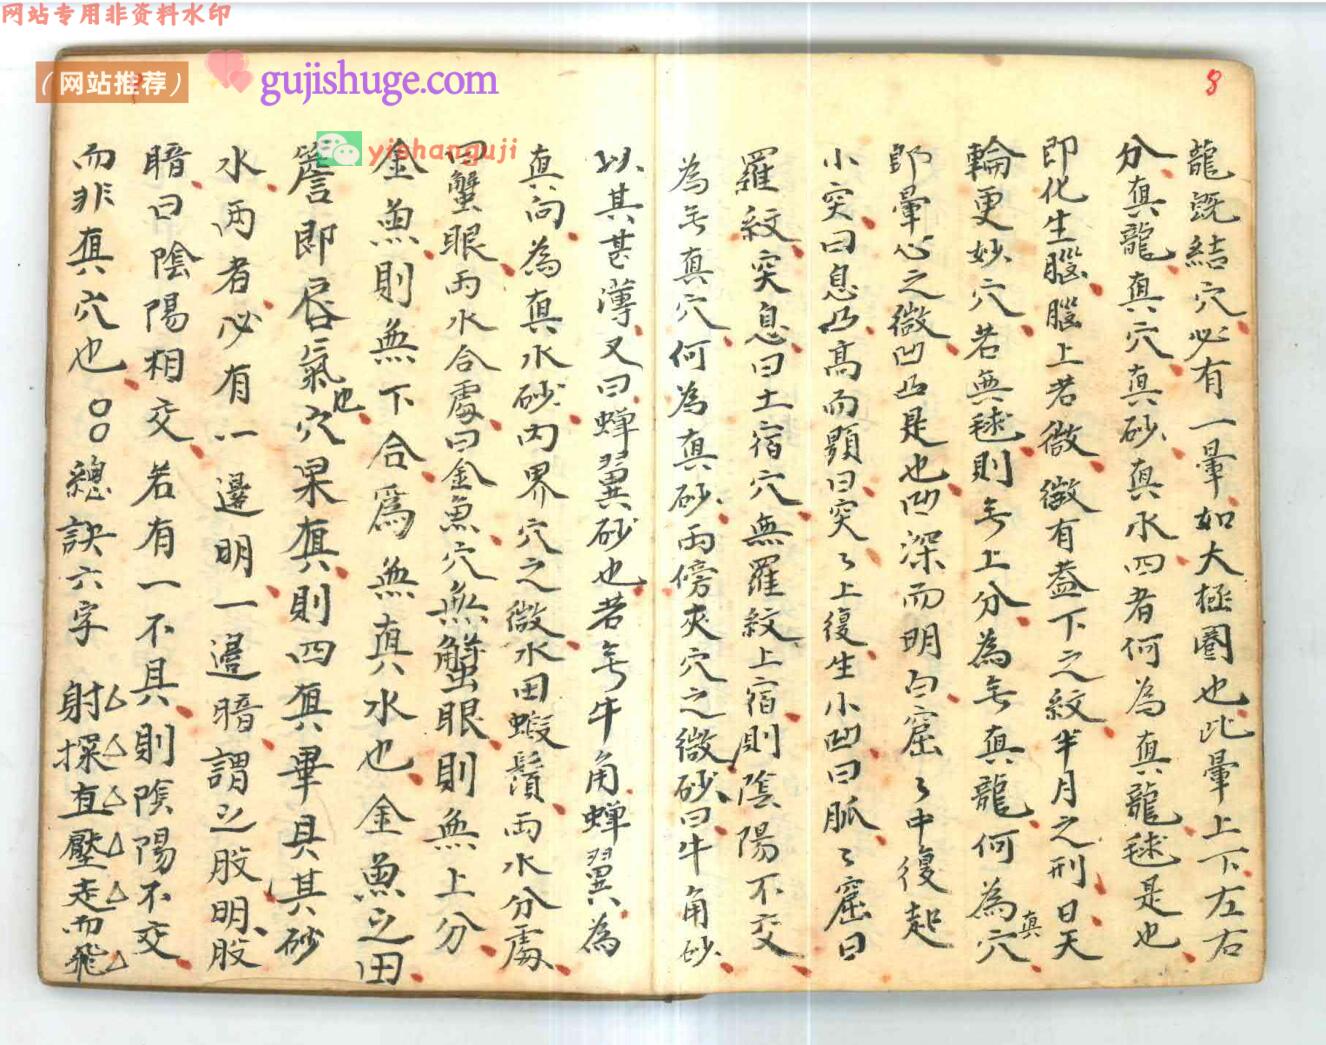 网站专用非资料水印
(网站推荐)
gujishuge.com
yishanguji
8
龍既結穴必有一暈如大極圈也此暈上下左右
分真龍真穴真砂真水四者何為真龍毬是也
即化生腦腦上者微微有盖下之紋半月之刑曰天
輪更妙穴若無毬則無上分為无真龍何為真穴
即暈心之微凹凸是也凹深而明曰窟々中復起
小突曰息凸高而顯曰突々上復生小凹曰脈々窟曰
羅紋突息曰土宿穴無羅紋土宿則陰陽不交
為无真穴何為真砂兩傍夾穴之微砂曰牛角砂
以其甚薄又曰蟬翼砂也若无牛角蟬翼為
真向為真水砂內界穴之微水田蝦鬚兩水分處
曰蟹眼兩水合處曰金魚穴無蟹眼則無上分
金魚則無下合為無真水也金魚之田
簷即唇氣也穴果真則四真畢具其砂
水兩者必有一邊明一邊暗謂之股明股
暗曰陰陽相交若有一不具則陰陽不交
而非真穴也 〇〇總訣六字 射探直壓走而飛